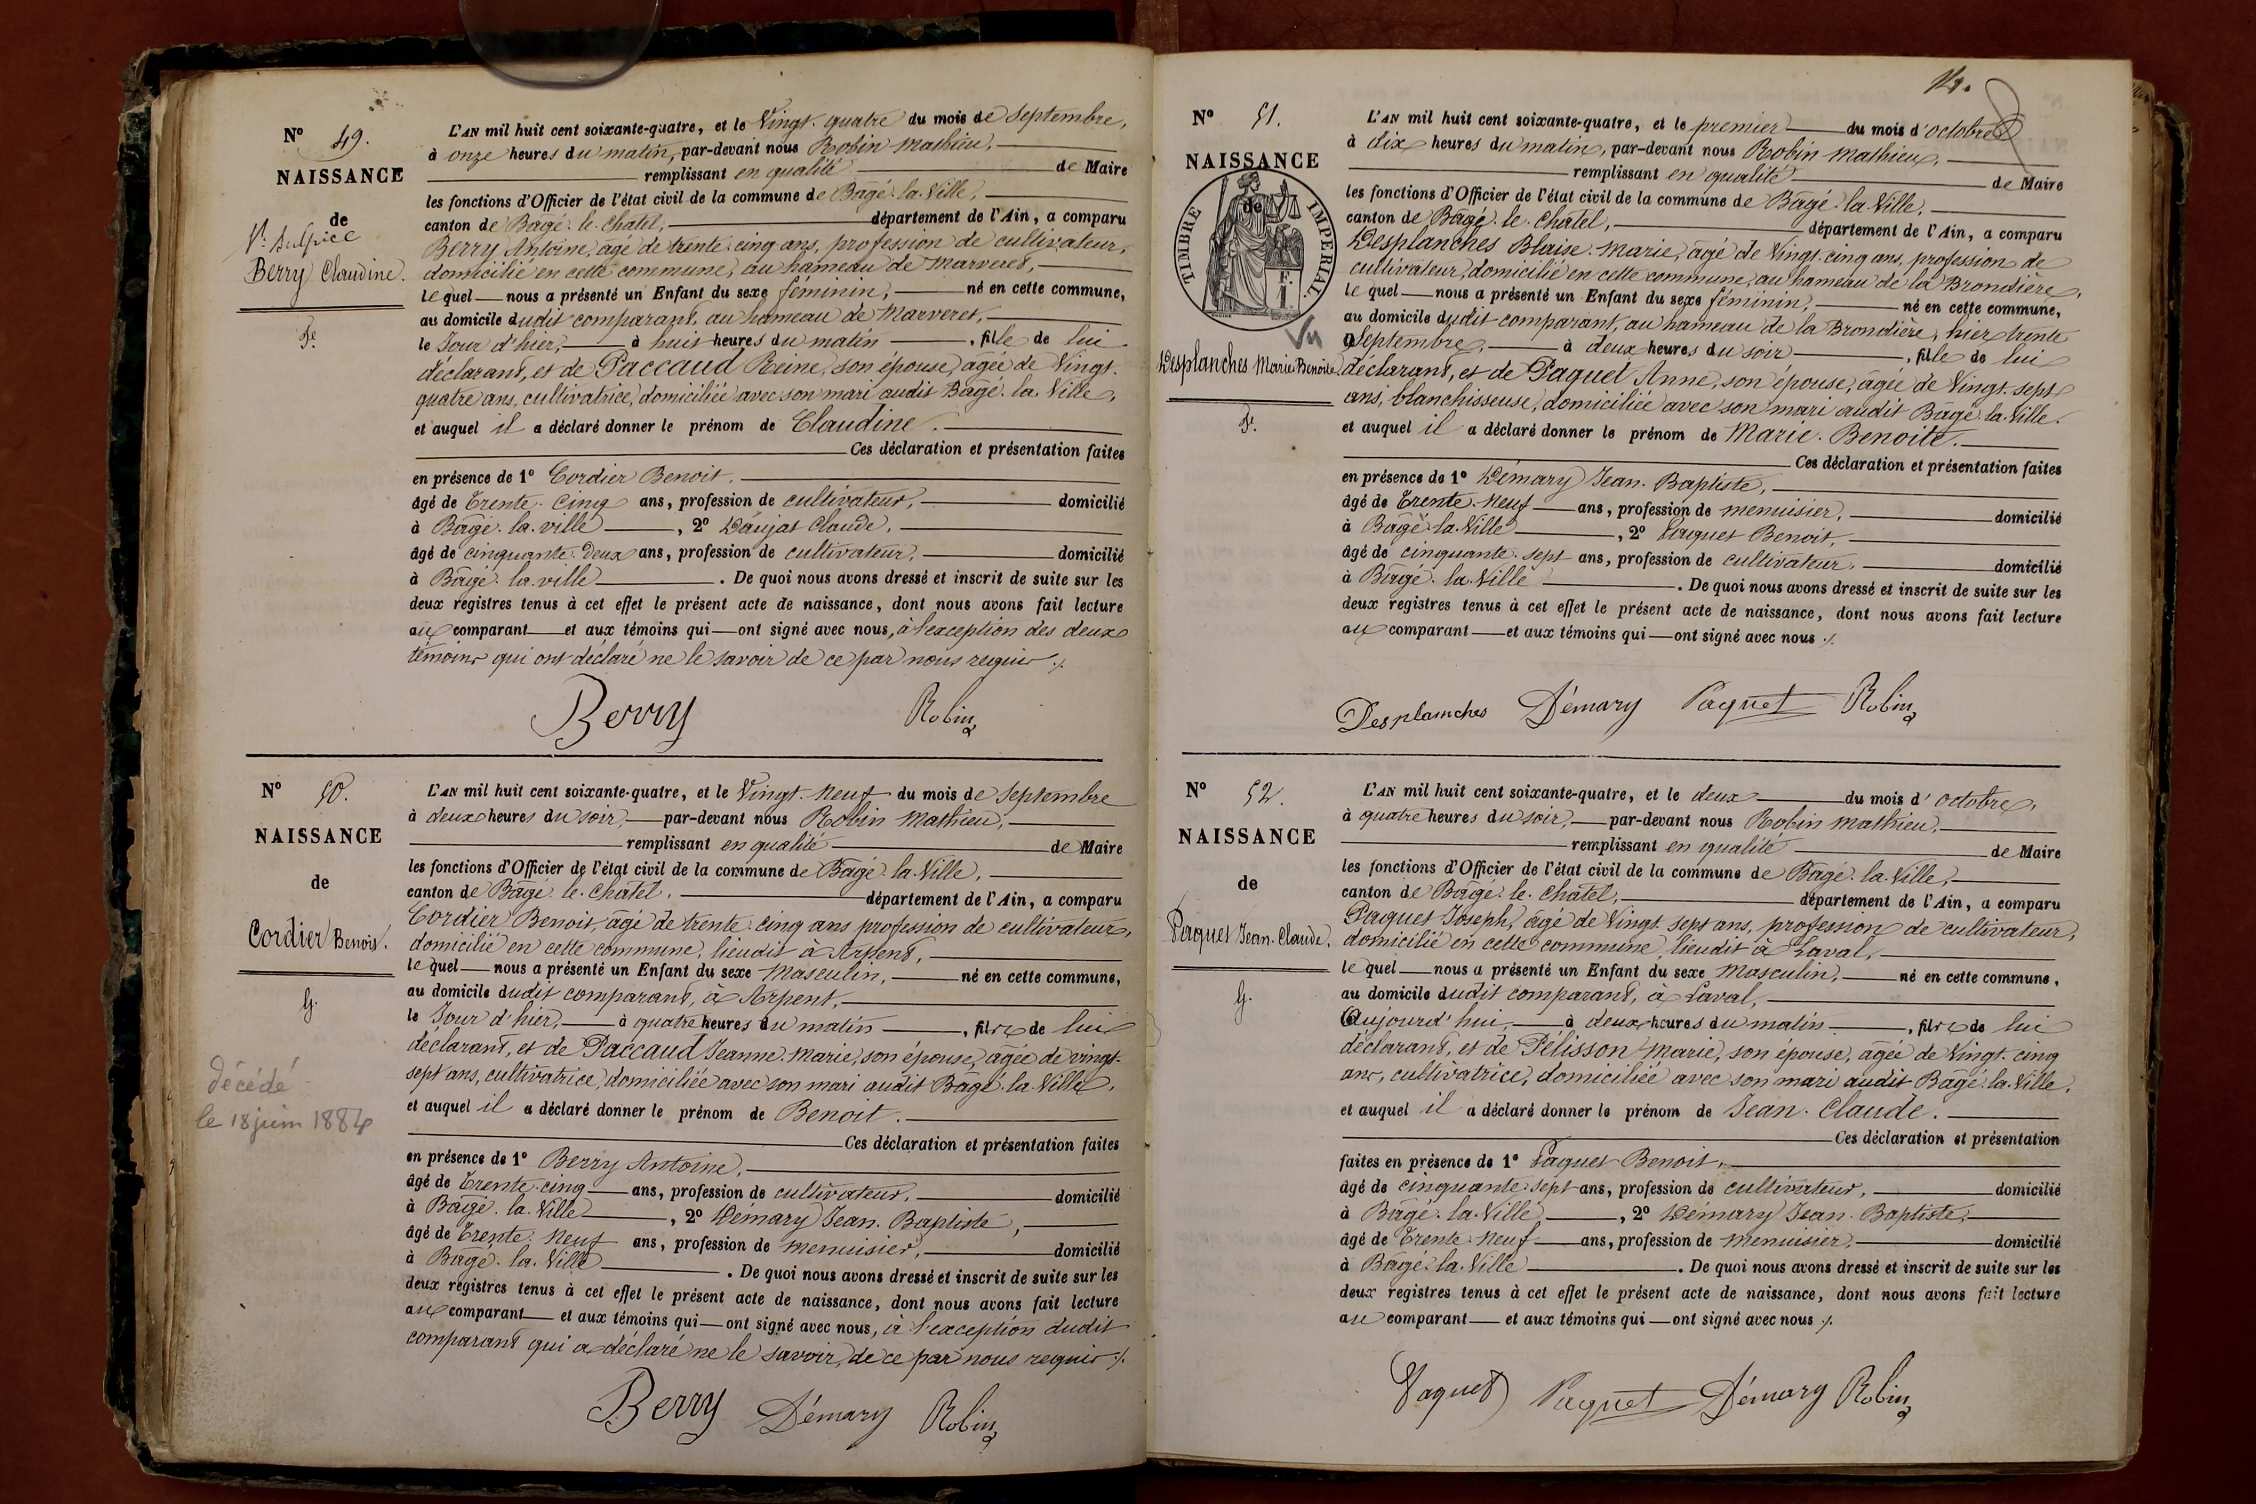 Nº 49.
NAISSANCE
de
St. Sulpice
Berry Claudine.
Fe.
L'AN mil huit cent soixante-quatre, et le Vingt-quatre du mois de Septembre,
à onze heures du matin, par-devant nous Robin Mathieu,
remplissant en qualité de Maire
les fonctions d'Officier de l'état civil de la commune de Bâgé-la-Ville,
canton de Bâgé-le-Châtel, département de l'Ain, a comparu
Berry Antoine, âgé de trente-cinq ans, profession de cultivateur,
domicilié en cette commune, au hameau de Marveret,
lequel nous a présenté un Enfant du sexe féminin, né en cette commune,
au domicile dudit comparant, au hameau de Marveret,
le Jour d'hier, à huit heures du matin, fille de lui
déclarant, et de Paccaud Reine, son épouse, âgée de Vingt-
quatre ans, cultivatrice, domiciliée avec son mari audit Bâgé-la-Ville,
et auquel il a déclaré donner le prénom de Claudine.
Ces déclaration et présentation faites
en présence de 1º Cordier Benoit,
âgé de Trente-cinq ans, profession de cultivateur, domicilié
à Bâgé-la-ville, 2º Daujat Claude,
âgé de cinquante-deux ans, profession de cultivateur, domicilié
à Bâgé-la-ville. De quoi nous avons dressé et inscrit de suite sur les
deux registres tenus à cet effet le présent acte de naissance, dont nous avons fait lecture
au comparant et aux témoins qui ont signé avec nous, à l'exception des deux
témoins qui ont déclaré ne le savoir de ce par nous requis ./.
Berry Robin
Nº 50.
NAISSANCE
de
Cordier Benoit.
G.
décédé
le 18 juin 1884
L'AN mil huit cent soixante-quatre, et le Vingt-neuf du mois de Septembre
à deux heures du soir, par-devant nous Robin Mathieu,
remplissant en qualité de Maire
les fonctions d'Officier de l'état civil de la commune de Bâgé-la-Ville,
canton de Bâgé-le-Châtel, département de l'Ain, a comparu
Cordier Benoit, âgé de trente-cinq ans profession de cultivateur,
domicilié en cette commune, lieudit à Arpent,
lequel nous a présenté un Enfant du sexe Masculin, né en cette commune,
au domicile dudit comparant, à Arpent,
le Jour d'hier, à quatre heures du matin, fils de lui
déclarant, et de Paccaud Jeanne-Marie, son épouse, âgée de vingt-
sept ans, cultivatrice, domiciliée avec son mari audit Bâgé-la-Ville,
et auquel il a déclaré donner le prénom de Benoit.
Ces déclaration et présentation faites
en présence de 1º Berry Antoine,
âgé de Trente-cinq ans, profession de cultivateur, domicilié
à Bâgé-la-Ville, 2º Démary Jean-Baptiste,
âgé de Trente-neuf ans, profession de menuisier, domicilié
à Bâgé-la-Ville. De quoi nous avons dressé et inscrit de suite sur les
deux registres tenus à cet effet le présent acte de naissance, dont nous avons fait lecture
au comparant et aux témoins qui ont signé avec nous, à l'exception dudit
comparant qui a déclaré ne le savoir, de ce par nous requis ./.
Berry Démary Robin
14.
Nº 51.
NAISSANCE
de
TIMBRE IMPERIAL
F. 1
Vu
Desplanches Marie-Benoite
Fe.
L'AN mil huit cent soixante-quatre, et le premier du mois d'octobre
à dix heures du matin, par-devant nous Robin Mathieu,
remplissant en qualité de Maire
les fonctions d'Officier de l'état civil de la commune de Bâgé-la-Ville,
canton de Bâgé-le-Châtel, département de l'Ain, a comparu
Desplanches Blaise-Marie, âgé de Vingt-cinq ans, profession de
cultivateur, domicilié en cette commune, au hameau de la Brondière,
lequel nous a présenté un Enfant du sexe féminin, né en cette commune,
au domicile dudit comparant, au hameau de la Brondière, hier trente
Septembre, à deux heures du soir, fille de lui
déclarant, et de Paquet Anne, son épouse, âgée de Vingt-sept
ans, blanchisseuse, domiciliée avec son mari audit Bâgé-la-Ville.
et auquel il a déclaré donner le prénom de Marie-Benoite.
Ces déclaration et présentation faites
en présence de 1º Démary Jean-Baptiste,
âgé de Trente-neuf ans, profession de menuisier, domicilié
à Bâgé-la-Ville, 2º Paquet Benoit,
âgé de cinquante-sept ans, profession de cultivateur, domicilié
à Bâgé-la-Ville. De quoi nous avons dressé et inscrit de suite sur les
deux registres tenus à cet effet le présent acte de naissance, dont nous avons fait lecture
au comparant et aux témoins qui ont signé avec nous ./.
Desplanches Démary Paquet Robin
Nº 52.
NAISSANCE
de
Paquet Jean-Claude.
G.
L'AN mil huit cent soixante-quatre, et le deux du mois d'octobre,
à quatre heures du soir, par-devant nous Robin Mathieu,
remplissant en qualité de Maire
les fonctions d'Officier de l'état civil de la commune de Bâgé-la-Ville,
canton de Bâgé-le-Châtel, département de l'Ain, a comparu
Paquet Joseph, âgé de Vingt-sept ans, profession de cultivateur,
domicilié en cette commune, lieudit à Laval,
lequel nous a présenté un Enfant du sexe Masculin, né en cette commune,
au domicile dudit comparant, à Laval,
Aujourd'hui, à deux heures du matin, fils de lui
déclarant, et de Pélisson Marie, son épouse, âgée de Vingt-cinq
ans, cultivatrice, domiciliée avec son mari audit Bâgé-la-Ville,
et auquel il a déclaré donner le prénom de Jean-Claude.
Ces déclaration et présentation
faites en présence de 1º Paquet Benoit,
âgé de cinquante-sept ans, profession de cultivateur, domicilié
à Bâgé-la-Ville, 2º Démary Jean-Baptiste,
âgé de Trente-neuf ans, profession de menuisier, domicilié
à Bâgé-la-Ville. De quoi nous avons dressé et inscrit de suite sur les
deux registres tenus à cet effet le présent acte de naissance, dont nous avons fait lecture
au comparant et aux témoins qui ont signé avec nous ./.
Paquet Paquet Démary Robin